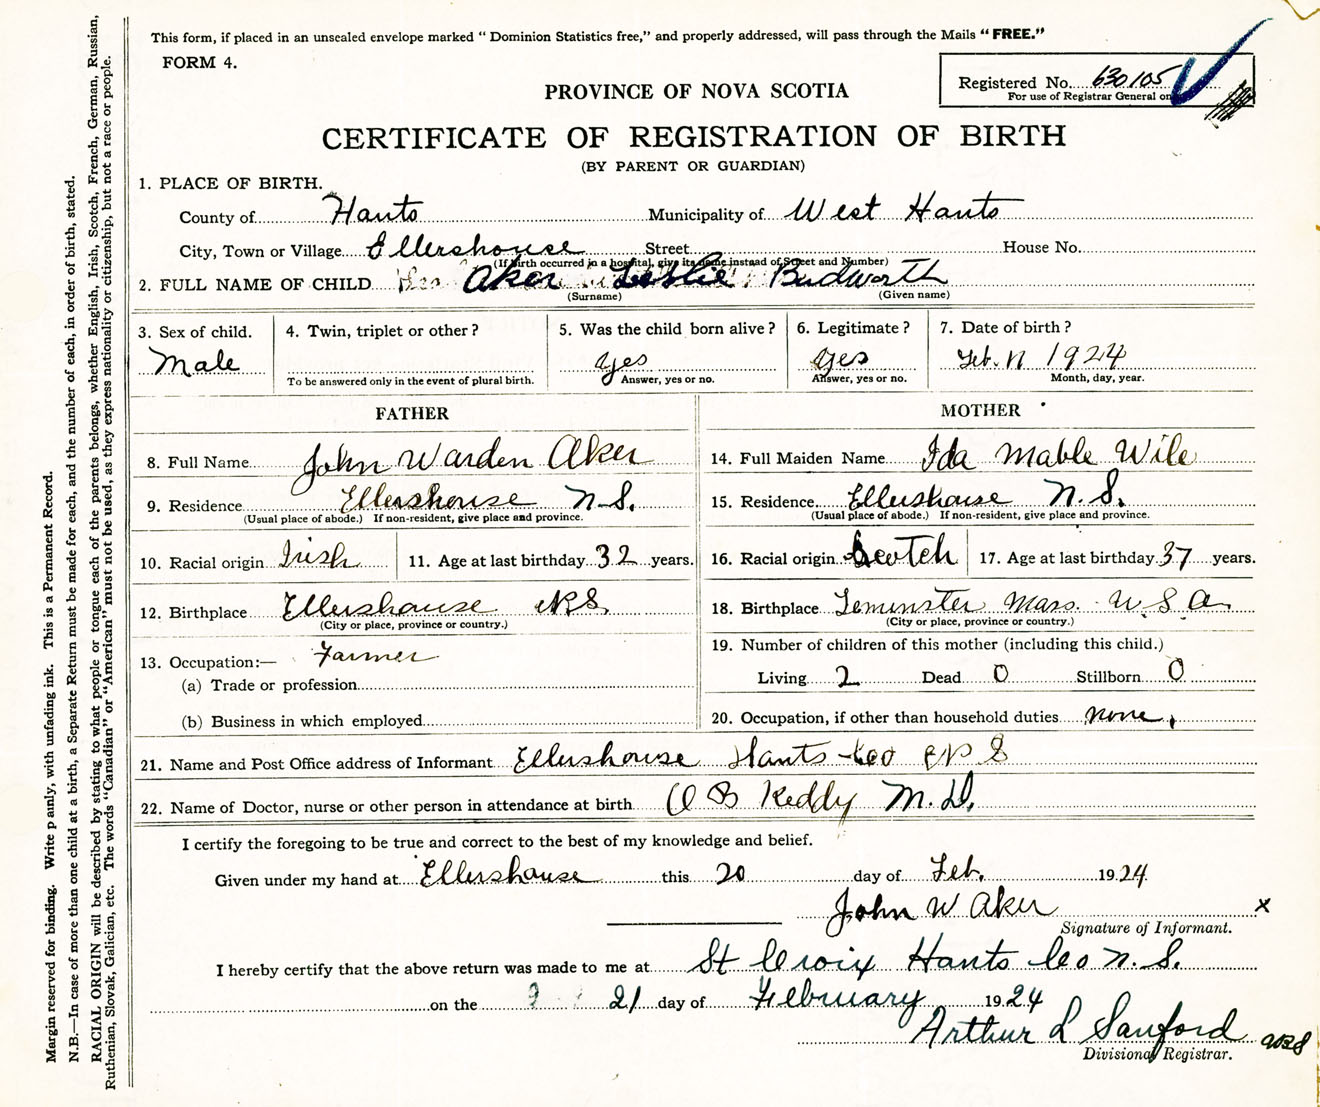 This form, if placed in an unsealed envelope marked “ Dominion Statistics free,” and properly addressed, will pass through the Mails “ FREE.”
FORM 4.
Registered No. 630105
For use of Registrar General on
PROVINCE OF NOVA SCOTIA
CERTIFICATE OF REGISTRATION OF BIRTH
(BY PARENT OR GUARDIAN)
1. PLACE OF BIRTH.
County of Hants Municipality of West Hants
City, Town or Village Ellershouse Street House No.
(If birth occurred in a hospital, give its name instead of Street and Number)
2. FULL NAME OF CHILD Aker Leslie Budworth
(Surname) (Given name)
3. Sex of child. 4. Twin, triplet or other? 5. Was the child born alive? 6. Legitimate? 7. Date of birth?
Male yes yes Feb. 1924
To be answered only in the event of plural birth. Answer, yes or no. Answer, yes or no. Month, day, year.
FATHER
8. Full Name John Warden Aker
9. Residence Ellershouse N.S.
(Usual place of abode.) If non-resident, give place and province.
10. Racial origin Irish 11. Age at last birthday 32 years.
12. Birthplace Ellershouse N.S.
(City or place, province or country.)
13. Occupation:— Farmer
(a) Trade or profession
(b) Business in which employed
MOTHER
14. Full Maiden Name Ida Mable Wile
15. Residence Ellershouse N.S.
(Usual place of abode.) If non-resident, give place and province.
16. Racial origin Scotch 17. Age at last birthday 37 years.
18. Birthplace Leminster Mass. U.S.A.
(City or place, province or country.)
19. Number of children of this mother (including this child.)
Living 2 Dead 0 Stillborn 0
20. Occupation, if other than household duties none.
21. Name and Post Office address of Informant Ellershouse Hants Co N S
22. Name of Doctor, nurse or other person in attendance at birth O B Keddy M.D.
I certify the foregoing to be true and correct to the best of my knowledge and belief.
Given under my hand at Ellershouse this 20 day of Feb. 1924
John W Aker x
Signature of Informant.
I hereby certify that the above return was made to me at St Croix Hants Co N.S.
on the 21 day of February 1924
Arthur L Sanford
Divisional Registrar.
Margin reserved for binding. Write p anly, with unfading ink. This is a Permanent Record.
N.B.—In case of more than one child at a birth, a Separate Return must be made for each, and the number of each, in order of birth, stated.
RACIAL ORIGIN will be described by stating to what people or tongue each of the parents belongs, whether English, Irish, Scotch, French, German, Russian,
Ruthenian, Slovak, Galician, etc. The words “Canadian” or “American” must not be used, as they express nationality or citizenship, but not a race or people.